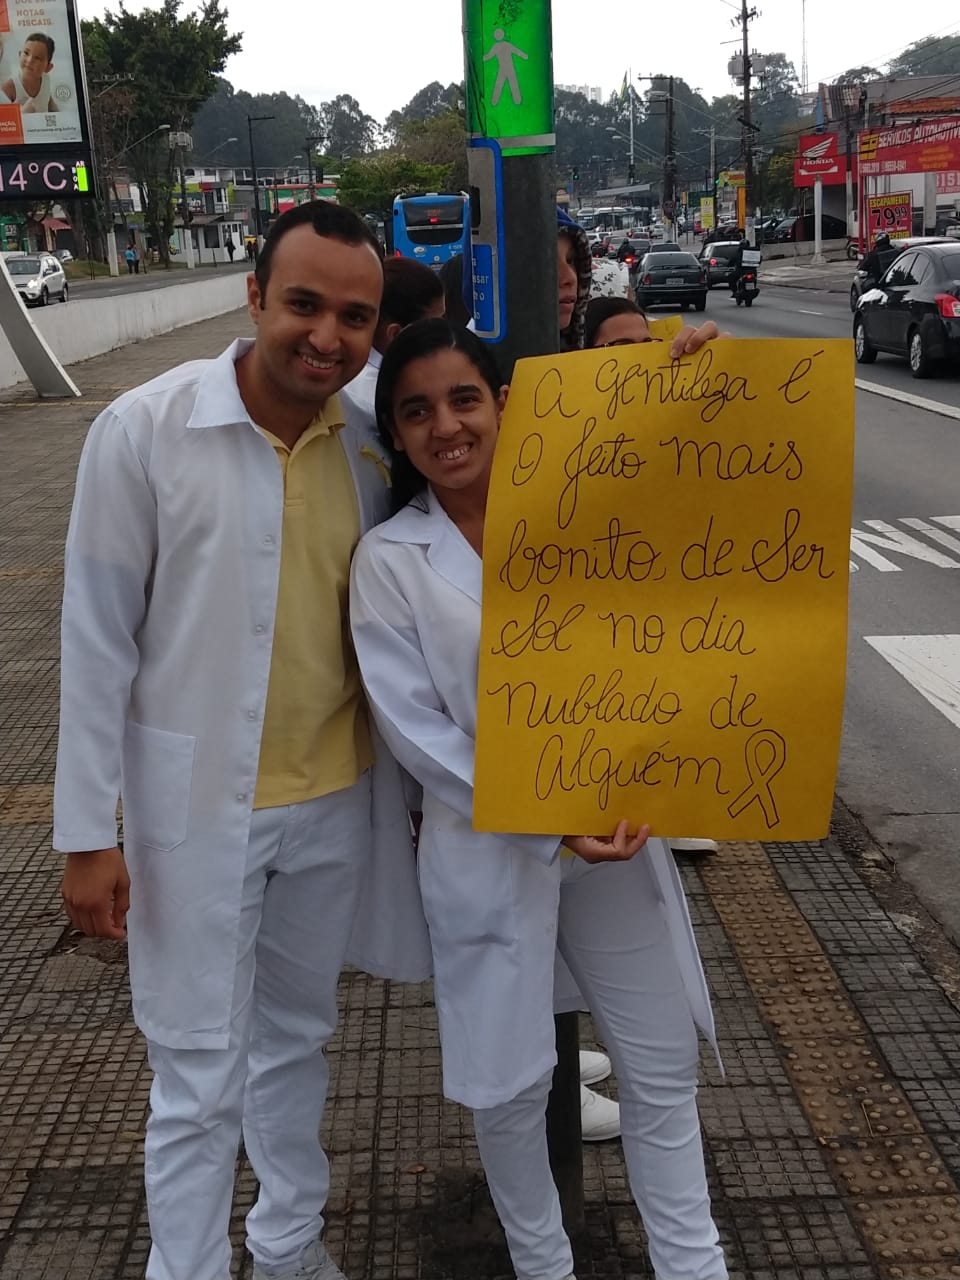 NOTAS
FISCAIS.
14°C
A gentileza é
o feito mais
bonito, de ser
sol no dia
nublado de
Alguém
HONDA
SERVIÇOS AUTOMOTIVOS
ESCAPAMENTO
79,99